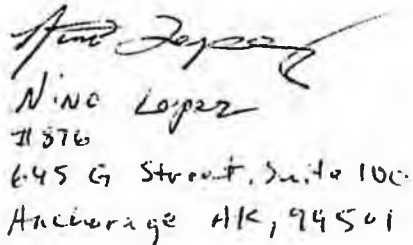 Nino Lopez
Nino Lopez
#876
645 G Street, Suite 100
Anchorage AK, 99501